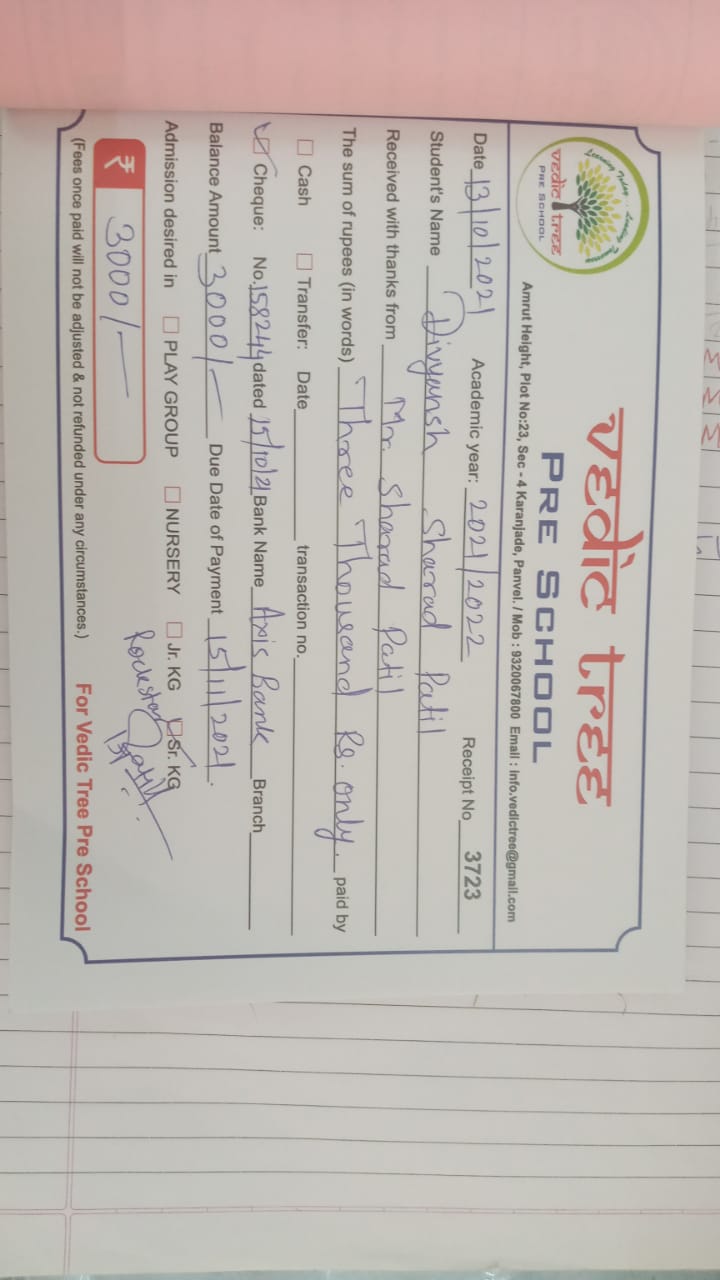 Learning Today... Leading Tomorrow
vedic tree
PRE SCHOOL
vedic tree
PRE SCHOOL
Amrut Height, Plot No:23, Sec - 4 Karanjade, Panvel. / Mob : 9320067800 Email : info.vedictree@gmail.com
Date 13/10/2021 Academic year: 2021/2022 Receipt No 3723
Student's Name Divyansh Sharad Patil
Received with thanks from Mr. Sharad Patil
The sum of rupees (in words) Three Thousand Rs. only. paid by
Cash Transfer: Date transaction no.
Cheque: No. 158244 dated 15/10/21 Bank Name Axis Bank Branch
Balance Amount 3000/- Due Date of Payment 15/11/2021.
Admission desired in PLAY GROUP NURSERY Jr. KG Sr. KG
₹ 3000/-
(Fees once paid will not be adjusted & not refunded under any circumstances.) For Vedic Tree Pre School